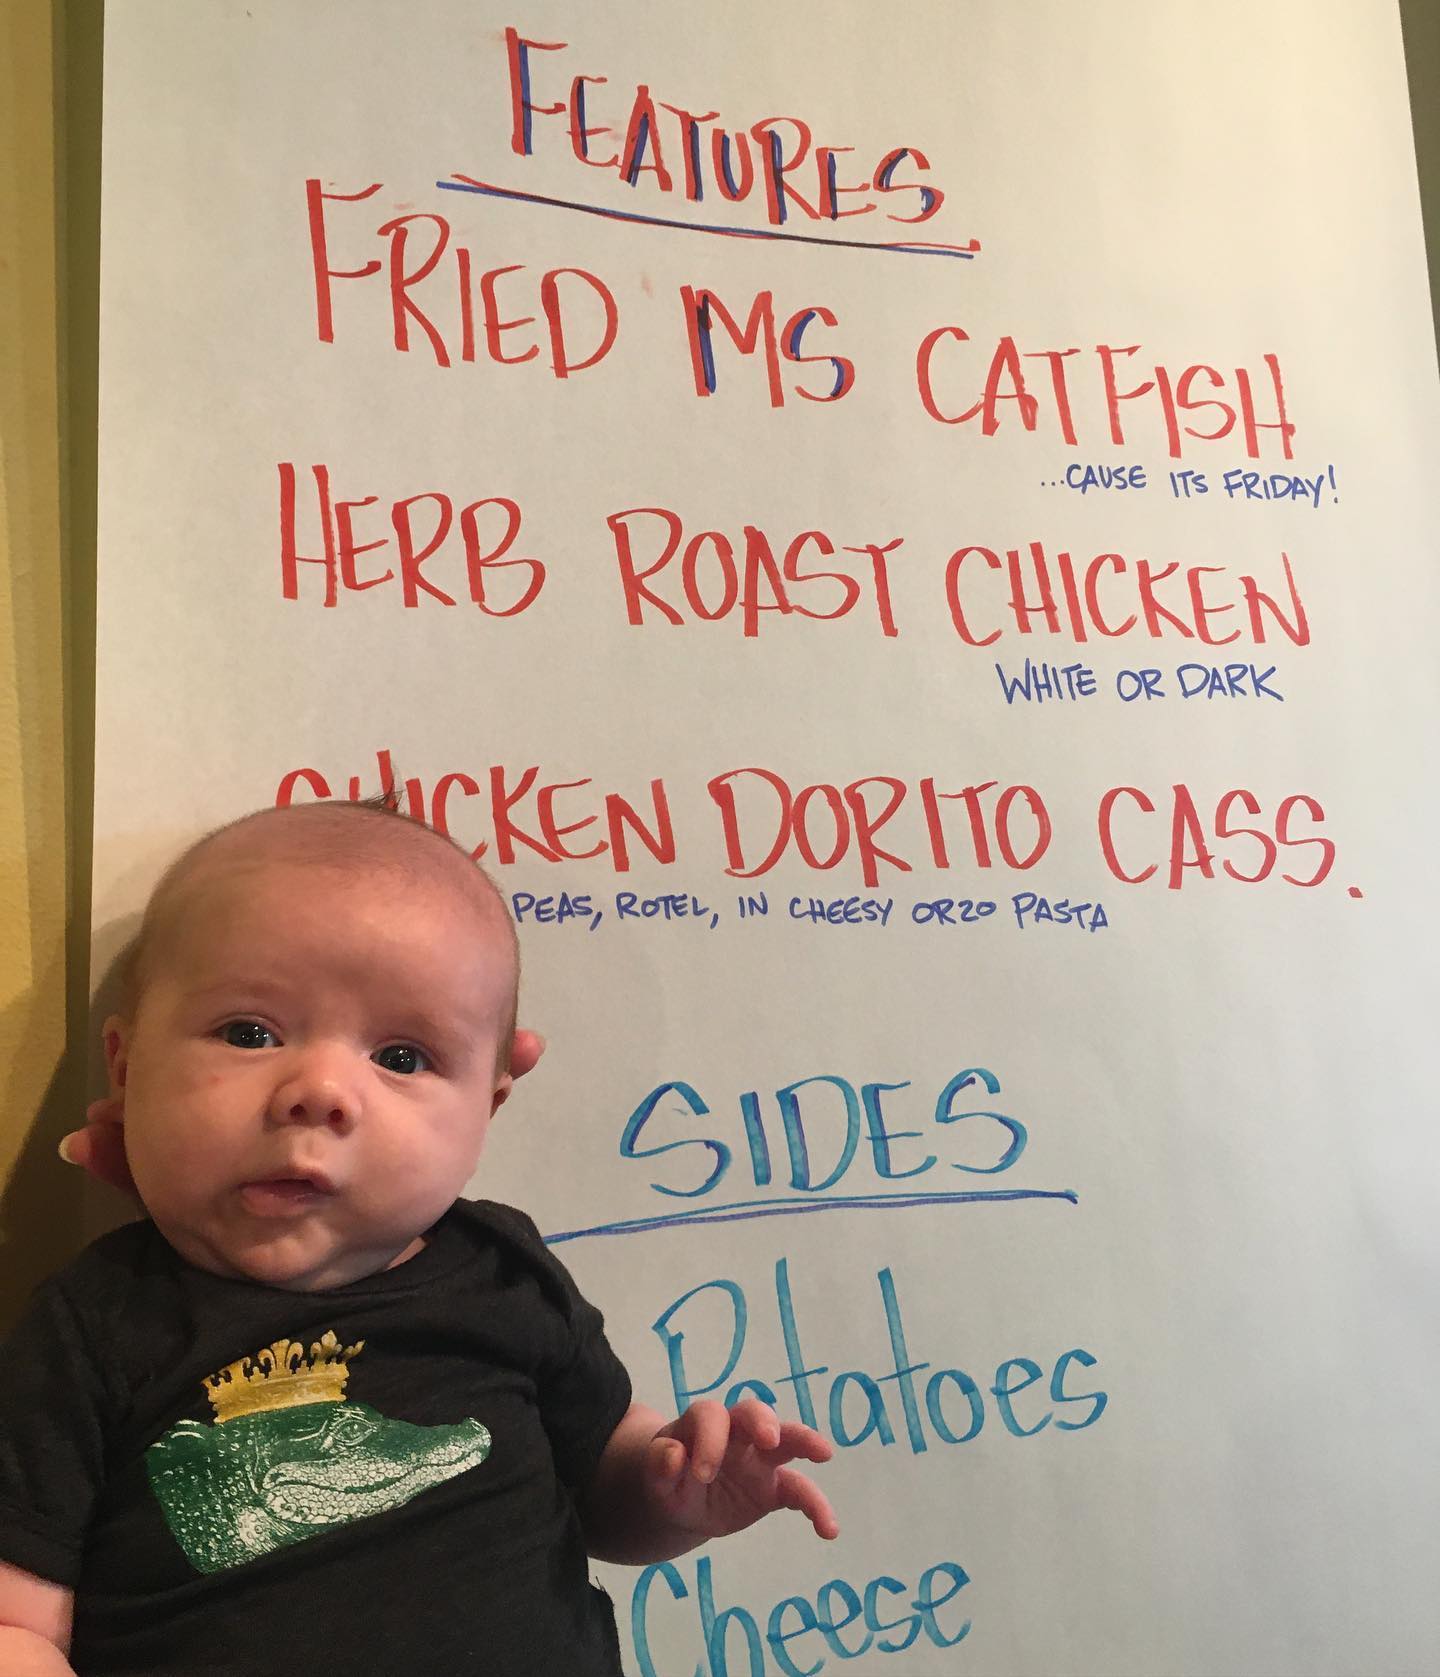 FEATURES
FRIED MS CATFISH
...CAUSE ITS FRIDAY!
HERB ROAST CHICKEN
WHITE OR DARK
CHICKEN DORITO CASS.
PEAS, ROTEL, IN CHEESY ORZO PASTA
SIDES
Potatoes
Cheese